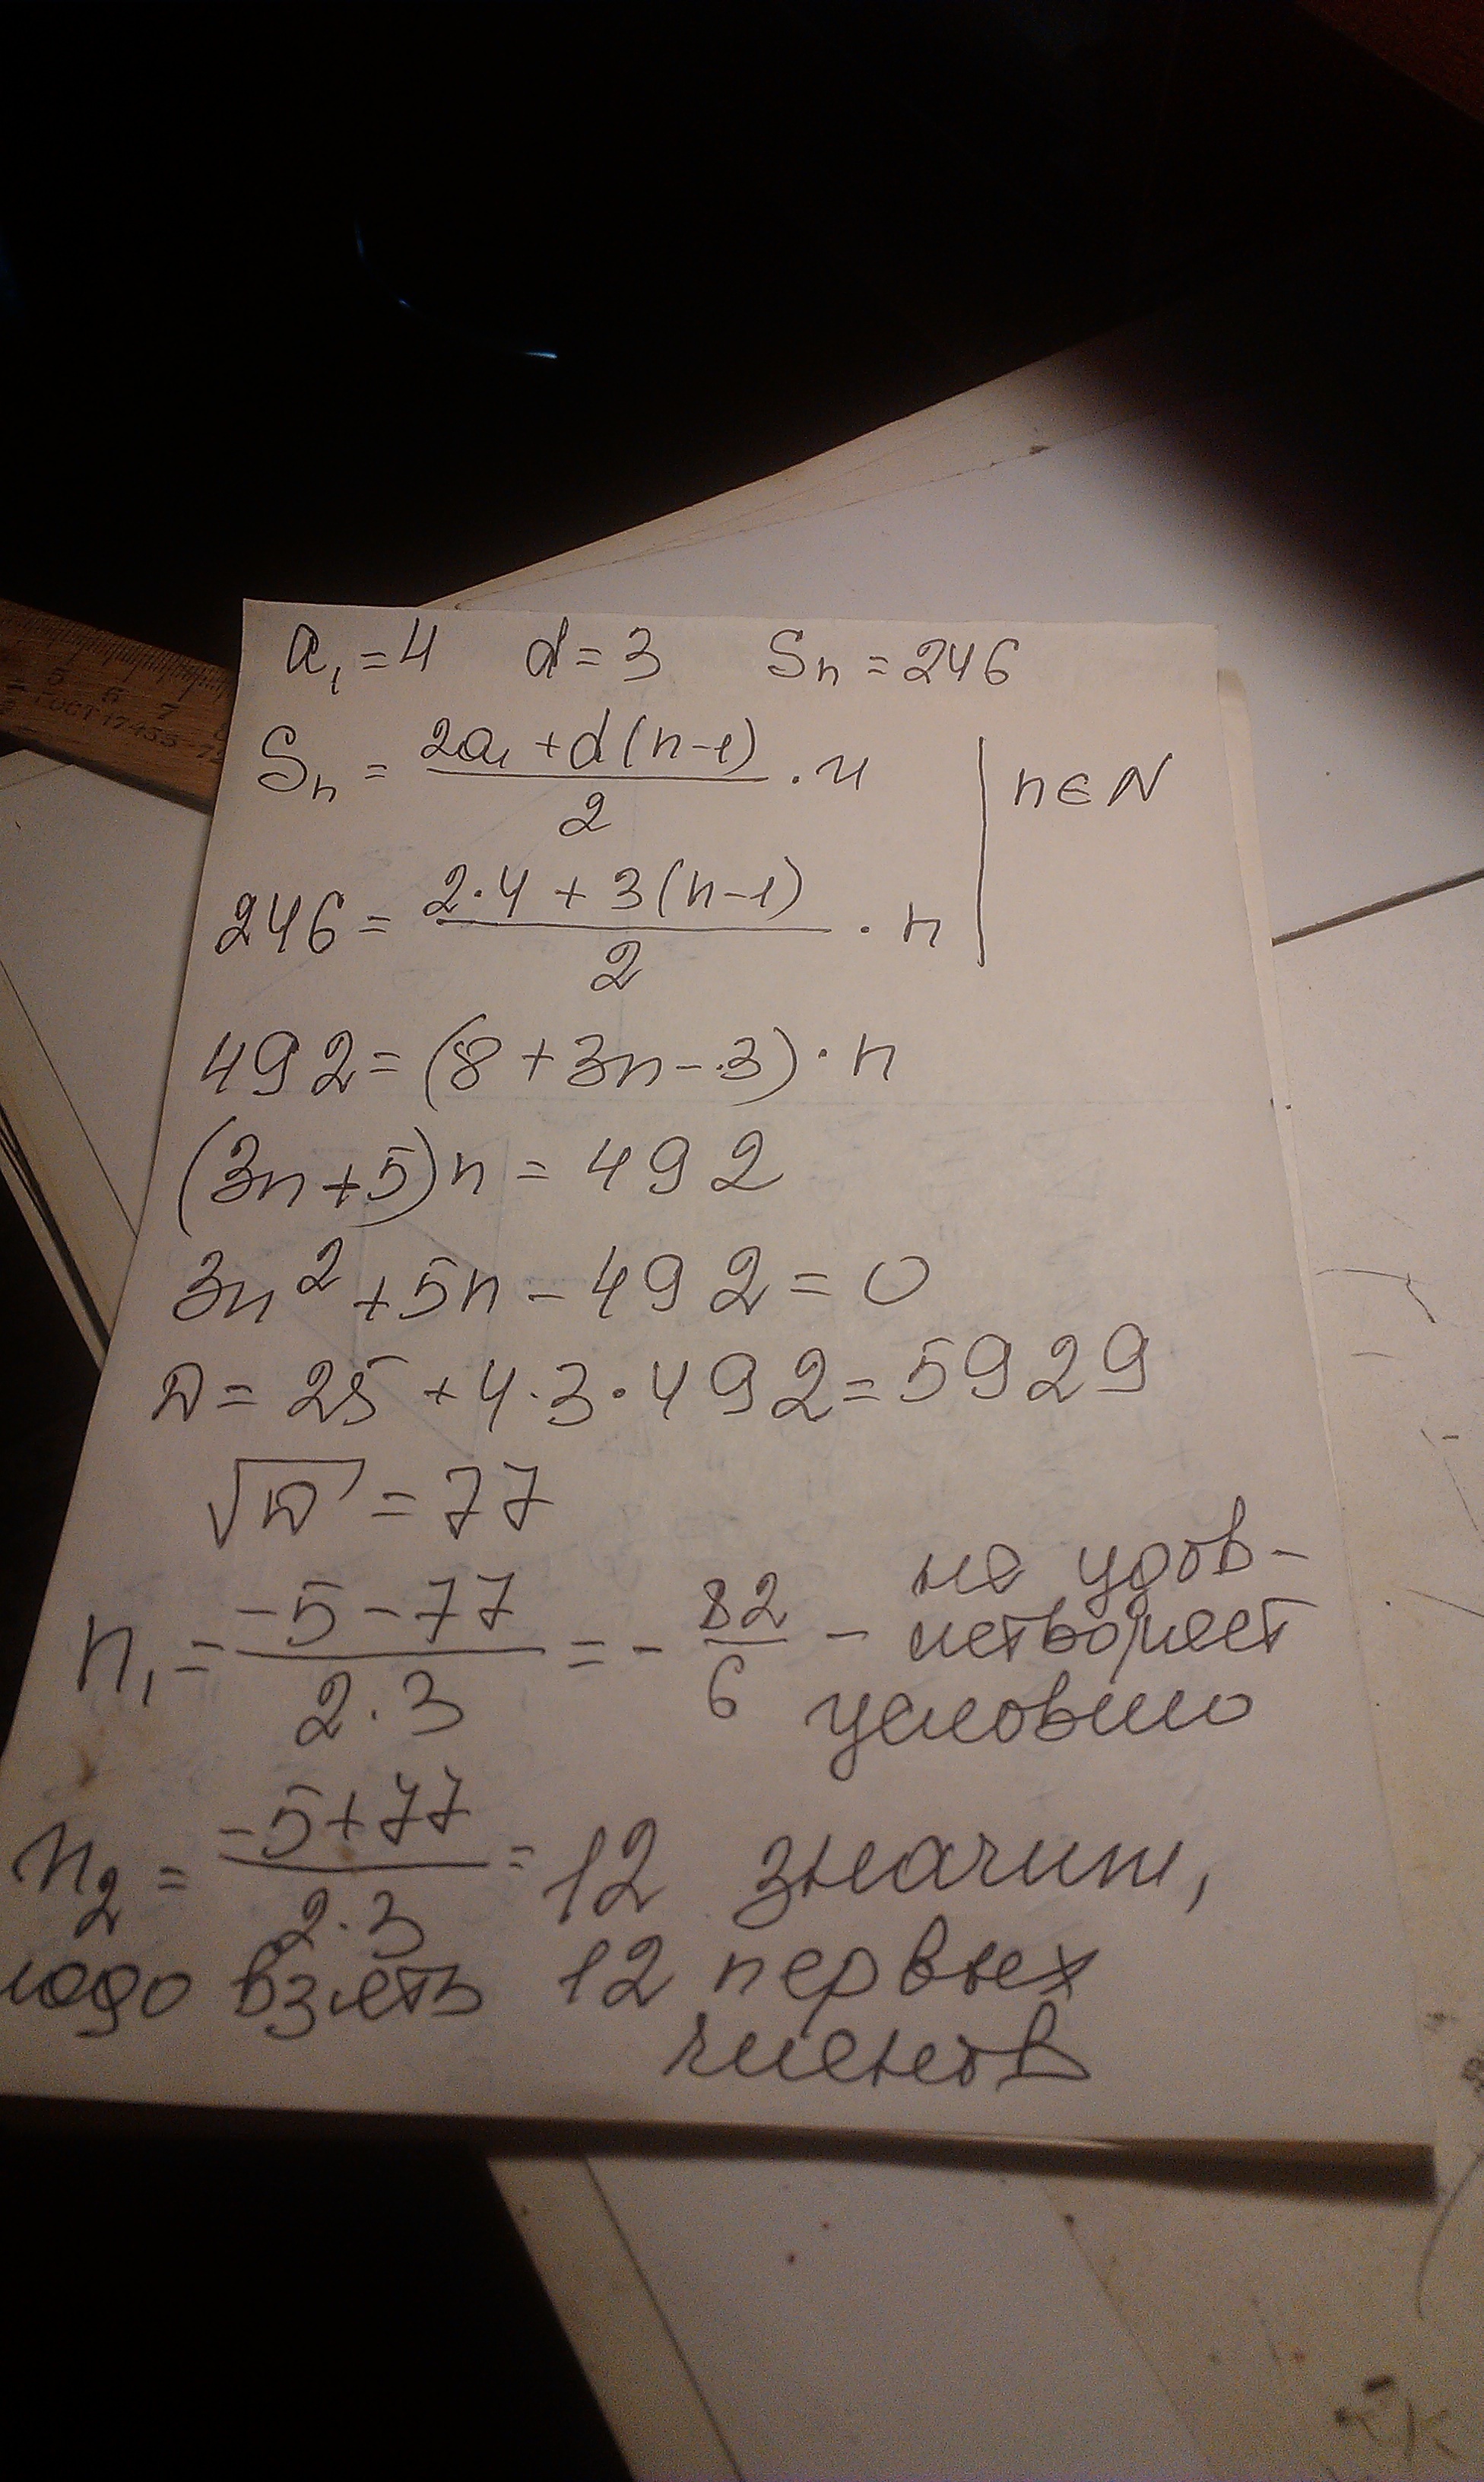 a₁ = 4 d = 3 Sn = 246
Sn = (2a₁ + d(n-1))/2 · n | n ∈ N
246 = (2·4 + 3(n-1))/2 · n
492 = (8 + 3n - 3) · n
(3n + 5)n = 492
3n² + 5n - 492 = 0
D = 25 + 4·3·492 = 5929
√D = 77
n₁ = (-5-77)/(2·3) = - 82/6 - не удов-
летворяет
условию
n₂ = (-5+77)/(2·3) = 12 значит,
надо взять 12 первых
членов
5 6 7
ГОСТ 17435-72